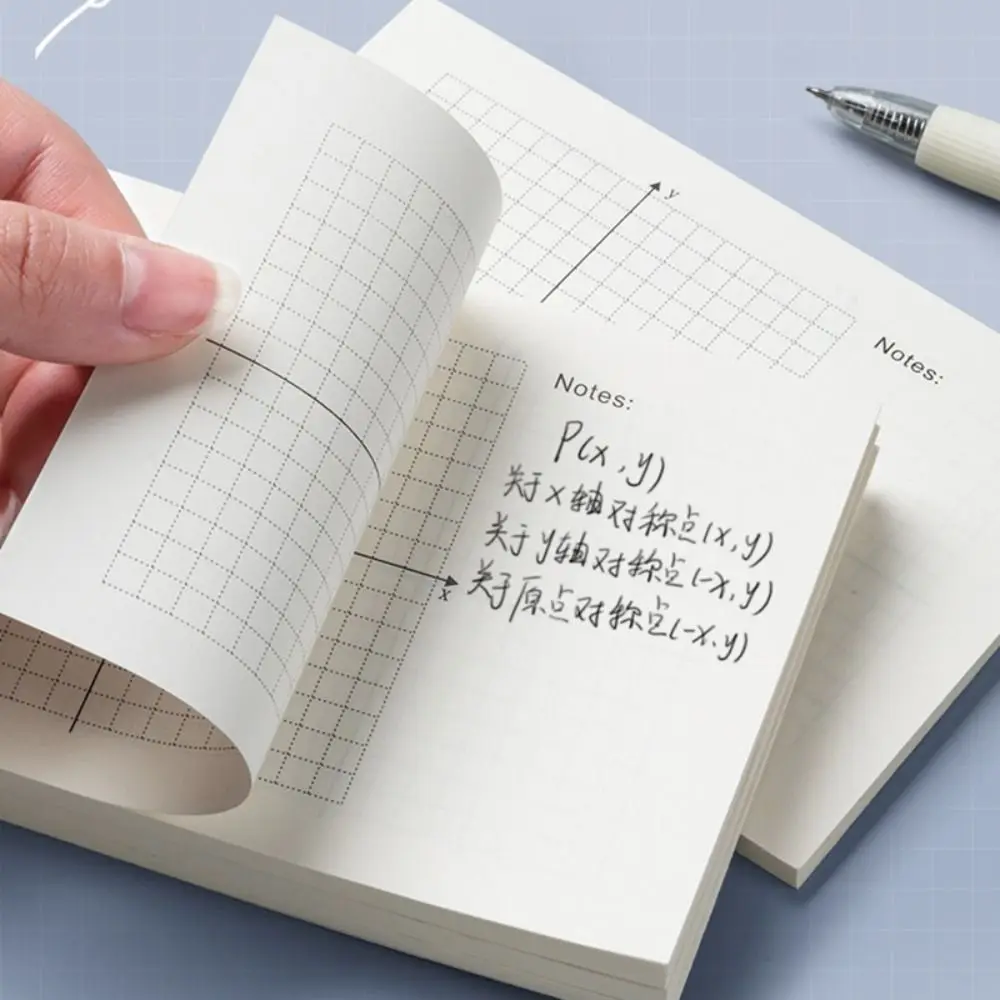 y
Notes:
Notes:
P(x,y)
关于x轴对称点(x,y)
关于y轴对称点(-x,y)
关于原点对称点(-x,y)
x